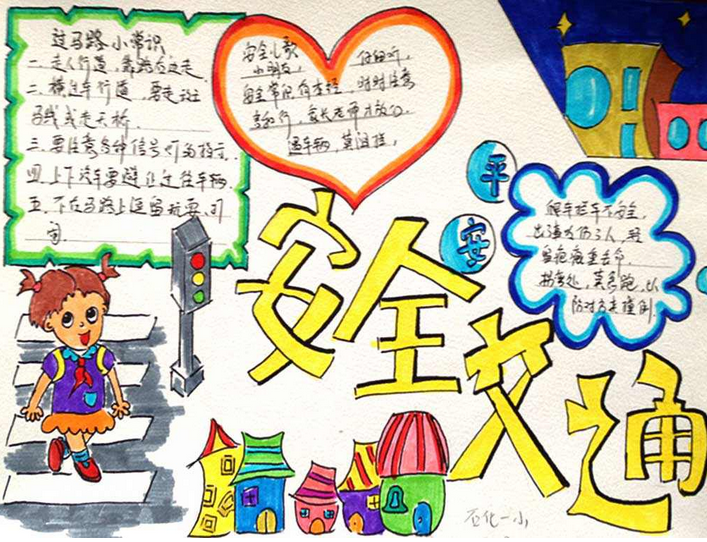 过马路小常识
一.走人行道,靠路右边走.
二.横过车行道,要走斑
马线或走天桥
三.要注意各种信号灯的指示
四.上下汽车要避让过往车辆.
五.不在马路上逗留玩耍、打
闹.
安全儿歌
小朋友, 仔细听,
安全常识有本经, 时时注意
家长老师才放心.
遇车辆,莫
平
安
爬车拦车不安全,
出事
莫急跑,以
防对方来撞倒.
安全交通
石化一小